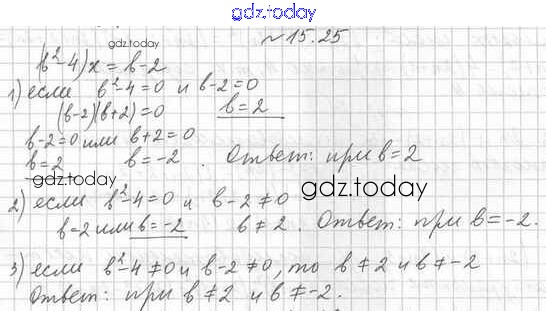 gdz.today
№15.25
gdz.today
(b²-4)x = b-2
1) если b²-4=0 и b-2=0
(b-2)(b+2)=0 b=2
b-2=0 или b+2=0
b=2 b=-2. Ответ: при b=2
gdz.today
gdz.today
2) если b²-4=0 и b-2≠0
b=2 или b=-2 b≠2. Ответ: при b=-2.
3) если b²-4≠0 и b-2≠0, то b≠2 и b≠-2
Ответ: при b≠2 и b≠-2.